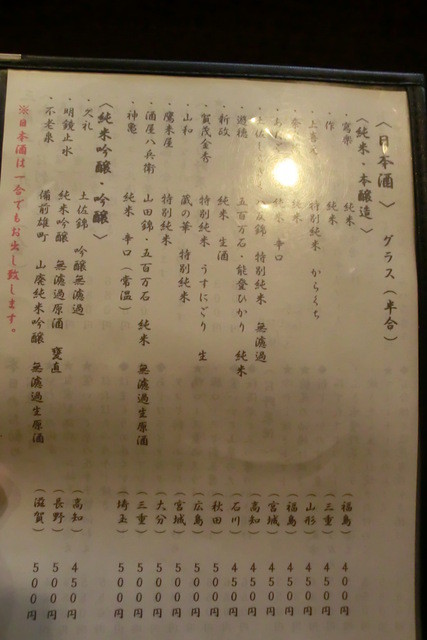 〈日本酒〉 グラス(半合)
〈純米・本醸造〉
・寫樂 純米 (福島) 400円
・作 純米 (三重) 450円
・上喜元 特別純米 からくち (山形) 450円
(福島) 450円
純米 辛口 (宮城) 450円
特別純米 無濾過 (高知) 450円
・遊穂 五百万石・能登ひかり 純米 (石川) 450円
・新政 純米 生酒 (秋田) 500円
・賀茂金秀 特別純米 うすにごり 生 (広島) 500円
・山和 蔵の華 特別純米 (宮城) 500円
・鷹来屋 特別純米 (大分) 500円
・酒屋八兵衛 山田錦・五百万石 純米 無濾過生原酒 (三重) 500円
・神亀 純米 辛口(常温) (埼玉) 500円
〈純米吟醸・吟醸〉
・久礼 土佐錦 吟醸無濾過 (高知) 450円
・明鏡止水 純米吟醸 無濾過原酒 甕直 (長野) 500円
・不老泉 備前雄町 山廃純米吟醸 無濾過生原酒 (滋賀) 500円
※日本酒は一合でもお出し致します。